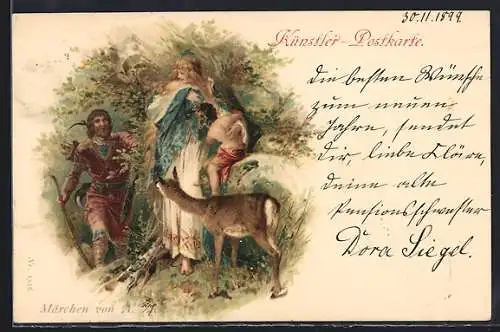 30.11.1899
Künstler-Postkarte.
Die besten Wünsche
zum neuen
Jahre, sendet
Dir liebe Kläre,
deine alte
Pensionsschwester
Dora Siegel.
Märchen von A.